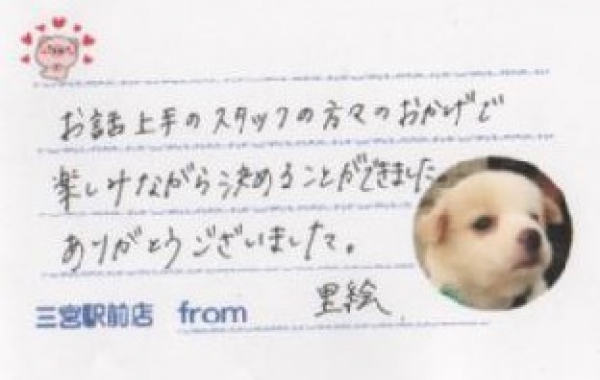 お話上手のスタッフの方々のおかげで
楽しみながら決めることができました
ありがとうございました。
三宮駅前店 from 里絵